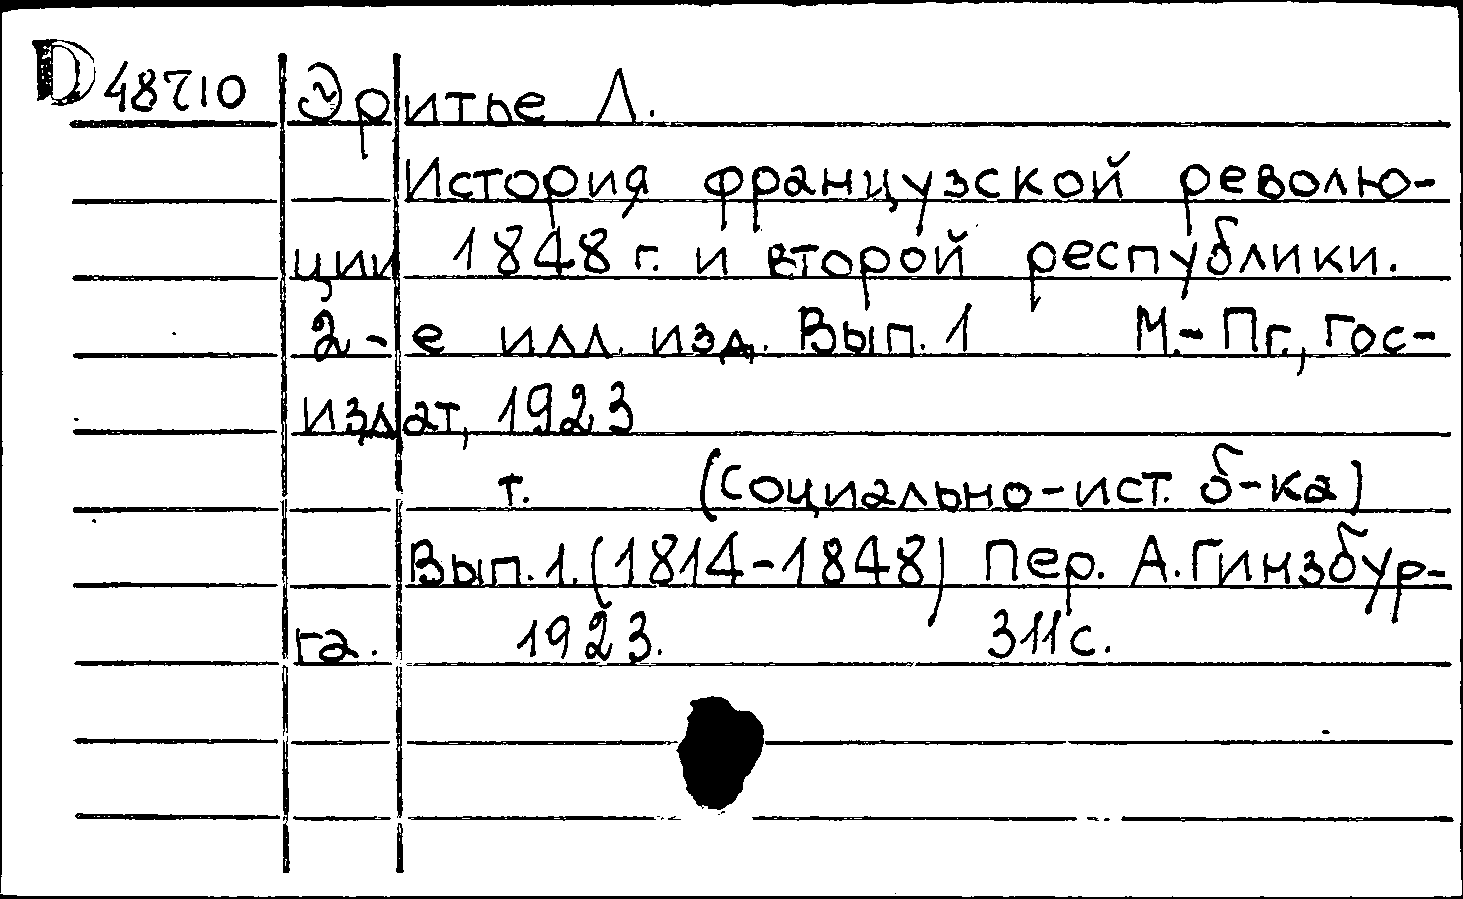 D 48710 Эритье Л.
История французской револю-
ции 1848 г. и второй республики.
2-е илл. изд. Вып. 1 М.-Пг., Гос-
издат, 1923
т. (Социально-ист. б-ка)
Вып. 1. (1814-1848) Пер. А. Гинзбур-
га. 1923. 311 с.